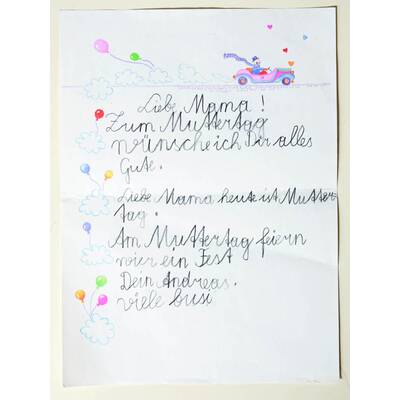 Liebe Mama!
Zum Muttertag
wünsche ich Dir alles
Gute.
Liebe Mama heute ist Mutter
tag.
Am Muttertag feiern
wier ein Fest
Dein Andreas.
viele busi